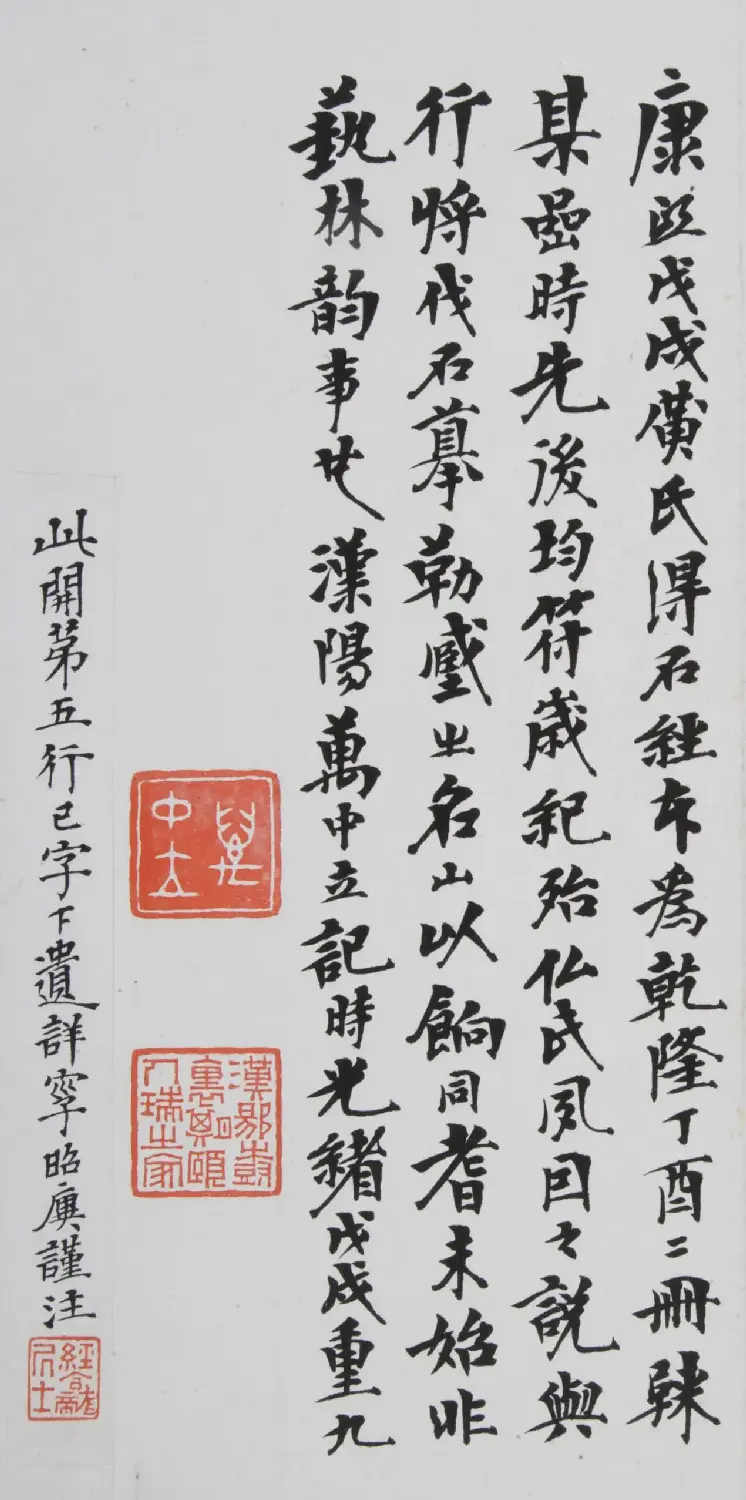 康熙戊戌黃氏得石經本為乾隆丁酉二冊隸
某嵒時先後均符歲紀殆仏氏夙因之說與
行將伐石摹勒藏之名山以餉同耆未始非
藝林韵事也漢陽萬中立記時光緒戊戌重九
萬中立
漢陽壽裏期頤人瑞之家
此開第五行已字下遺詳字昭庾謹注